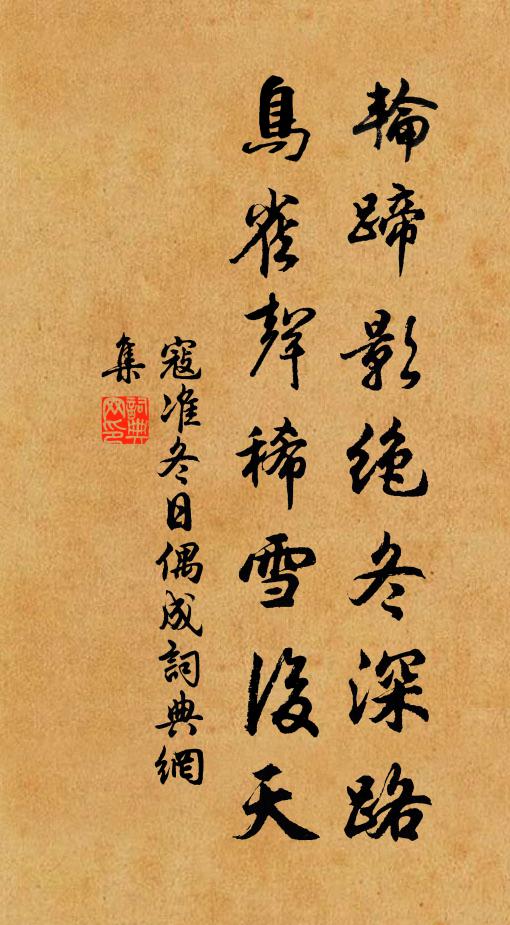 輪蹄影絶冬深路
鳥雀聲稀雪後天
寇准冬日偶成詞典網
集
詞典
网印